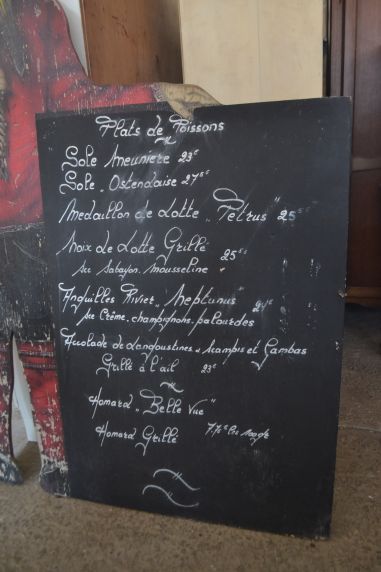 Plats de Poissons
Sole Meunière 23€
Sole - Ostendaise 27
Medaillon de Lotte „Petrus" 25
Noix de Lotte Grillé 25
Au Sabayon mousseline
Anguilles Rivier „Neptunus"
Au Crème, champignons, palourdes
Accolade de Langoustines, Scampis et Gambas
Grillé à l'ail 23€
Homard „Belle Vue"
Homard Grillé